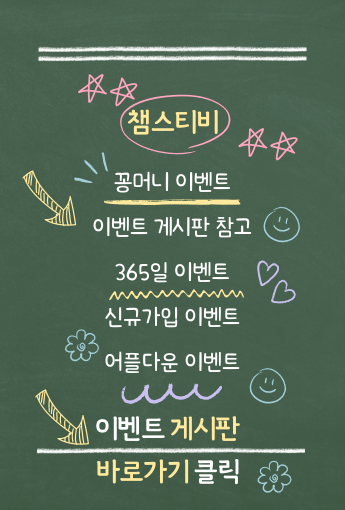 챔스티비
꽁머니 이벤트
이벤트 게시판 참고
365일 이벤트
신규가입 이벤트
어플다운 이벤트
이벤트 게시판
바로가기 클릭